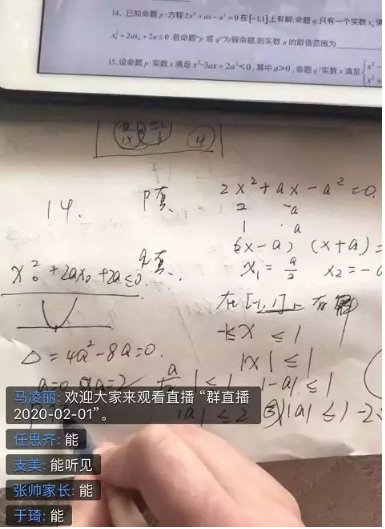 14、已知命题 p:方程2x²+ax-a²=0在[-1,1]上有解;命题 q:只有一个实数x₀满
x₀²+2ax₀+2a≤0.若命题"p 或 q"为假命题,则实数 a 的取值范围为
15、设命题 p:实数 x 满足 x²-3ax+2a²<0,其中 a>0,命题 q:实数 x 满足
④
14.
P真
2x²+ax-a²=0.
2 -a
1 a
(2x-a) (x+a)=
q真.
x₀²+2ax₀+2a≤0.
x₁=a/2 x₂=-a
在[-1,1]上有解
-1≤x≤1
|x|≤1
Δ=4a²-8a=0.
|-a|≤1
|a|≤2
|a|≤1
马凌丽: 欢迎大家来观看直播 “群直播
2020-02-01”。
任思齐: 能
支美: 能听见
张帅家长: 能
于琦: 能